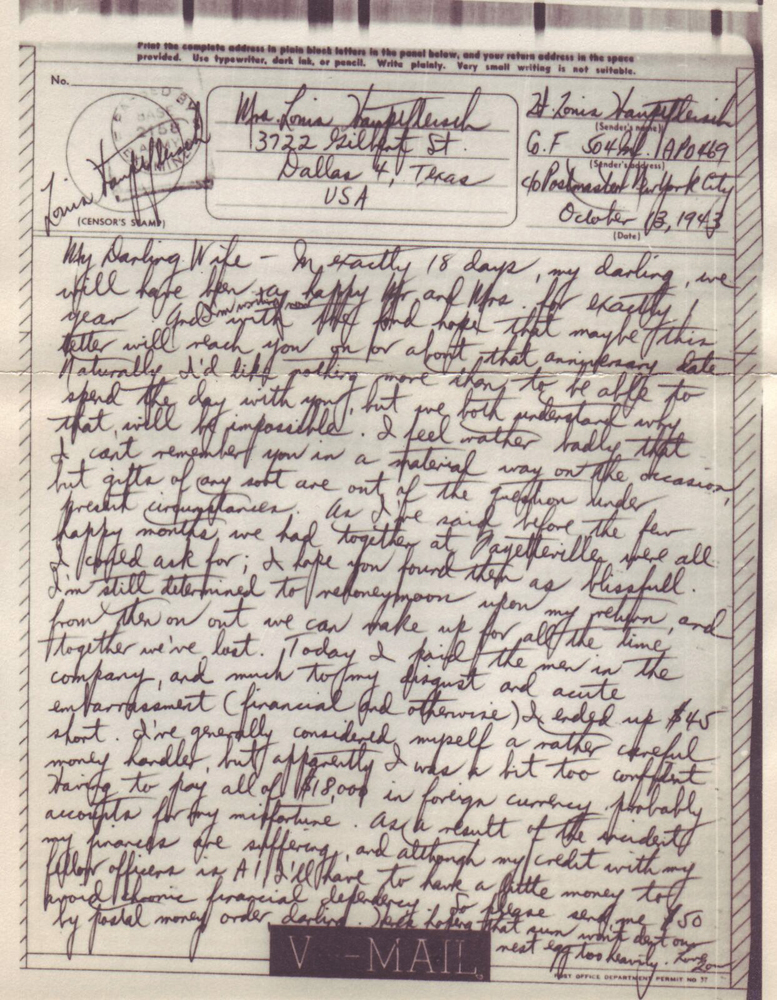 Print the complete address in plain block letters in the panel below, and your return address in the space
provided. Use typewriter, dark ink, or pencil. Write plainly. Very small writing is not suitable.
No.
Mrs. Louis Haupfleisch
3722 Gilbert St.
Dallas 4, Texas
USA
Lt. Louis Haupfleisch
(Sender's name)
Co. F 504th. APO 469
(Sender's address)
c/o Postmaster New York City
October 13, 1943
(Date)
Louis Haupfleisch
(CENSOR'S STAMP)
My Darling Wife – In exactly 18 days, my darling, we
will have been a happy Mr and Mrs. for exactly 1
year and I'm writing now with the fond hope that maybe this
letter will reach you on or about that anniversary date
Naturally I'd like nothing more than to be able to
spend the day with you, but we both understand why
that will be impossible. I feel rather badly that
I can't remember you in a material way on the occasion,
but gifts of any sort are out of the question under
present circumstances. As I've said before the few
happy months we had together at Fayetteville were all
I could ask for; I hope you found them as blissfull.
I'm still determined to rehoneymoon upon my return, and
from then on out we can make up for all the time
together we've lost. Today I paid the men in the
company, and much to my disgust and acute
embarrassment (financial and otherwise) I ended up $45
short. I've generally considered myself a rather careful
money handler, but apparently I was a bit too confident
Having to pay all of $18,000 in foreign currency probably
accounts for my misfortune. As a result of the incident
my finances are suffering, and although my credit with my
fellow officers is A1 I'll have to have a little money to
avoid chronic financial dependency. So please send me $50
by postal money order, darling. Here's hoping that sum won't dent our
nest egg too heavily. Love Lou
V - MAIL
POST OFFICE DEPARTMENT PERMIT NO 37